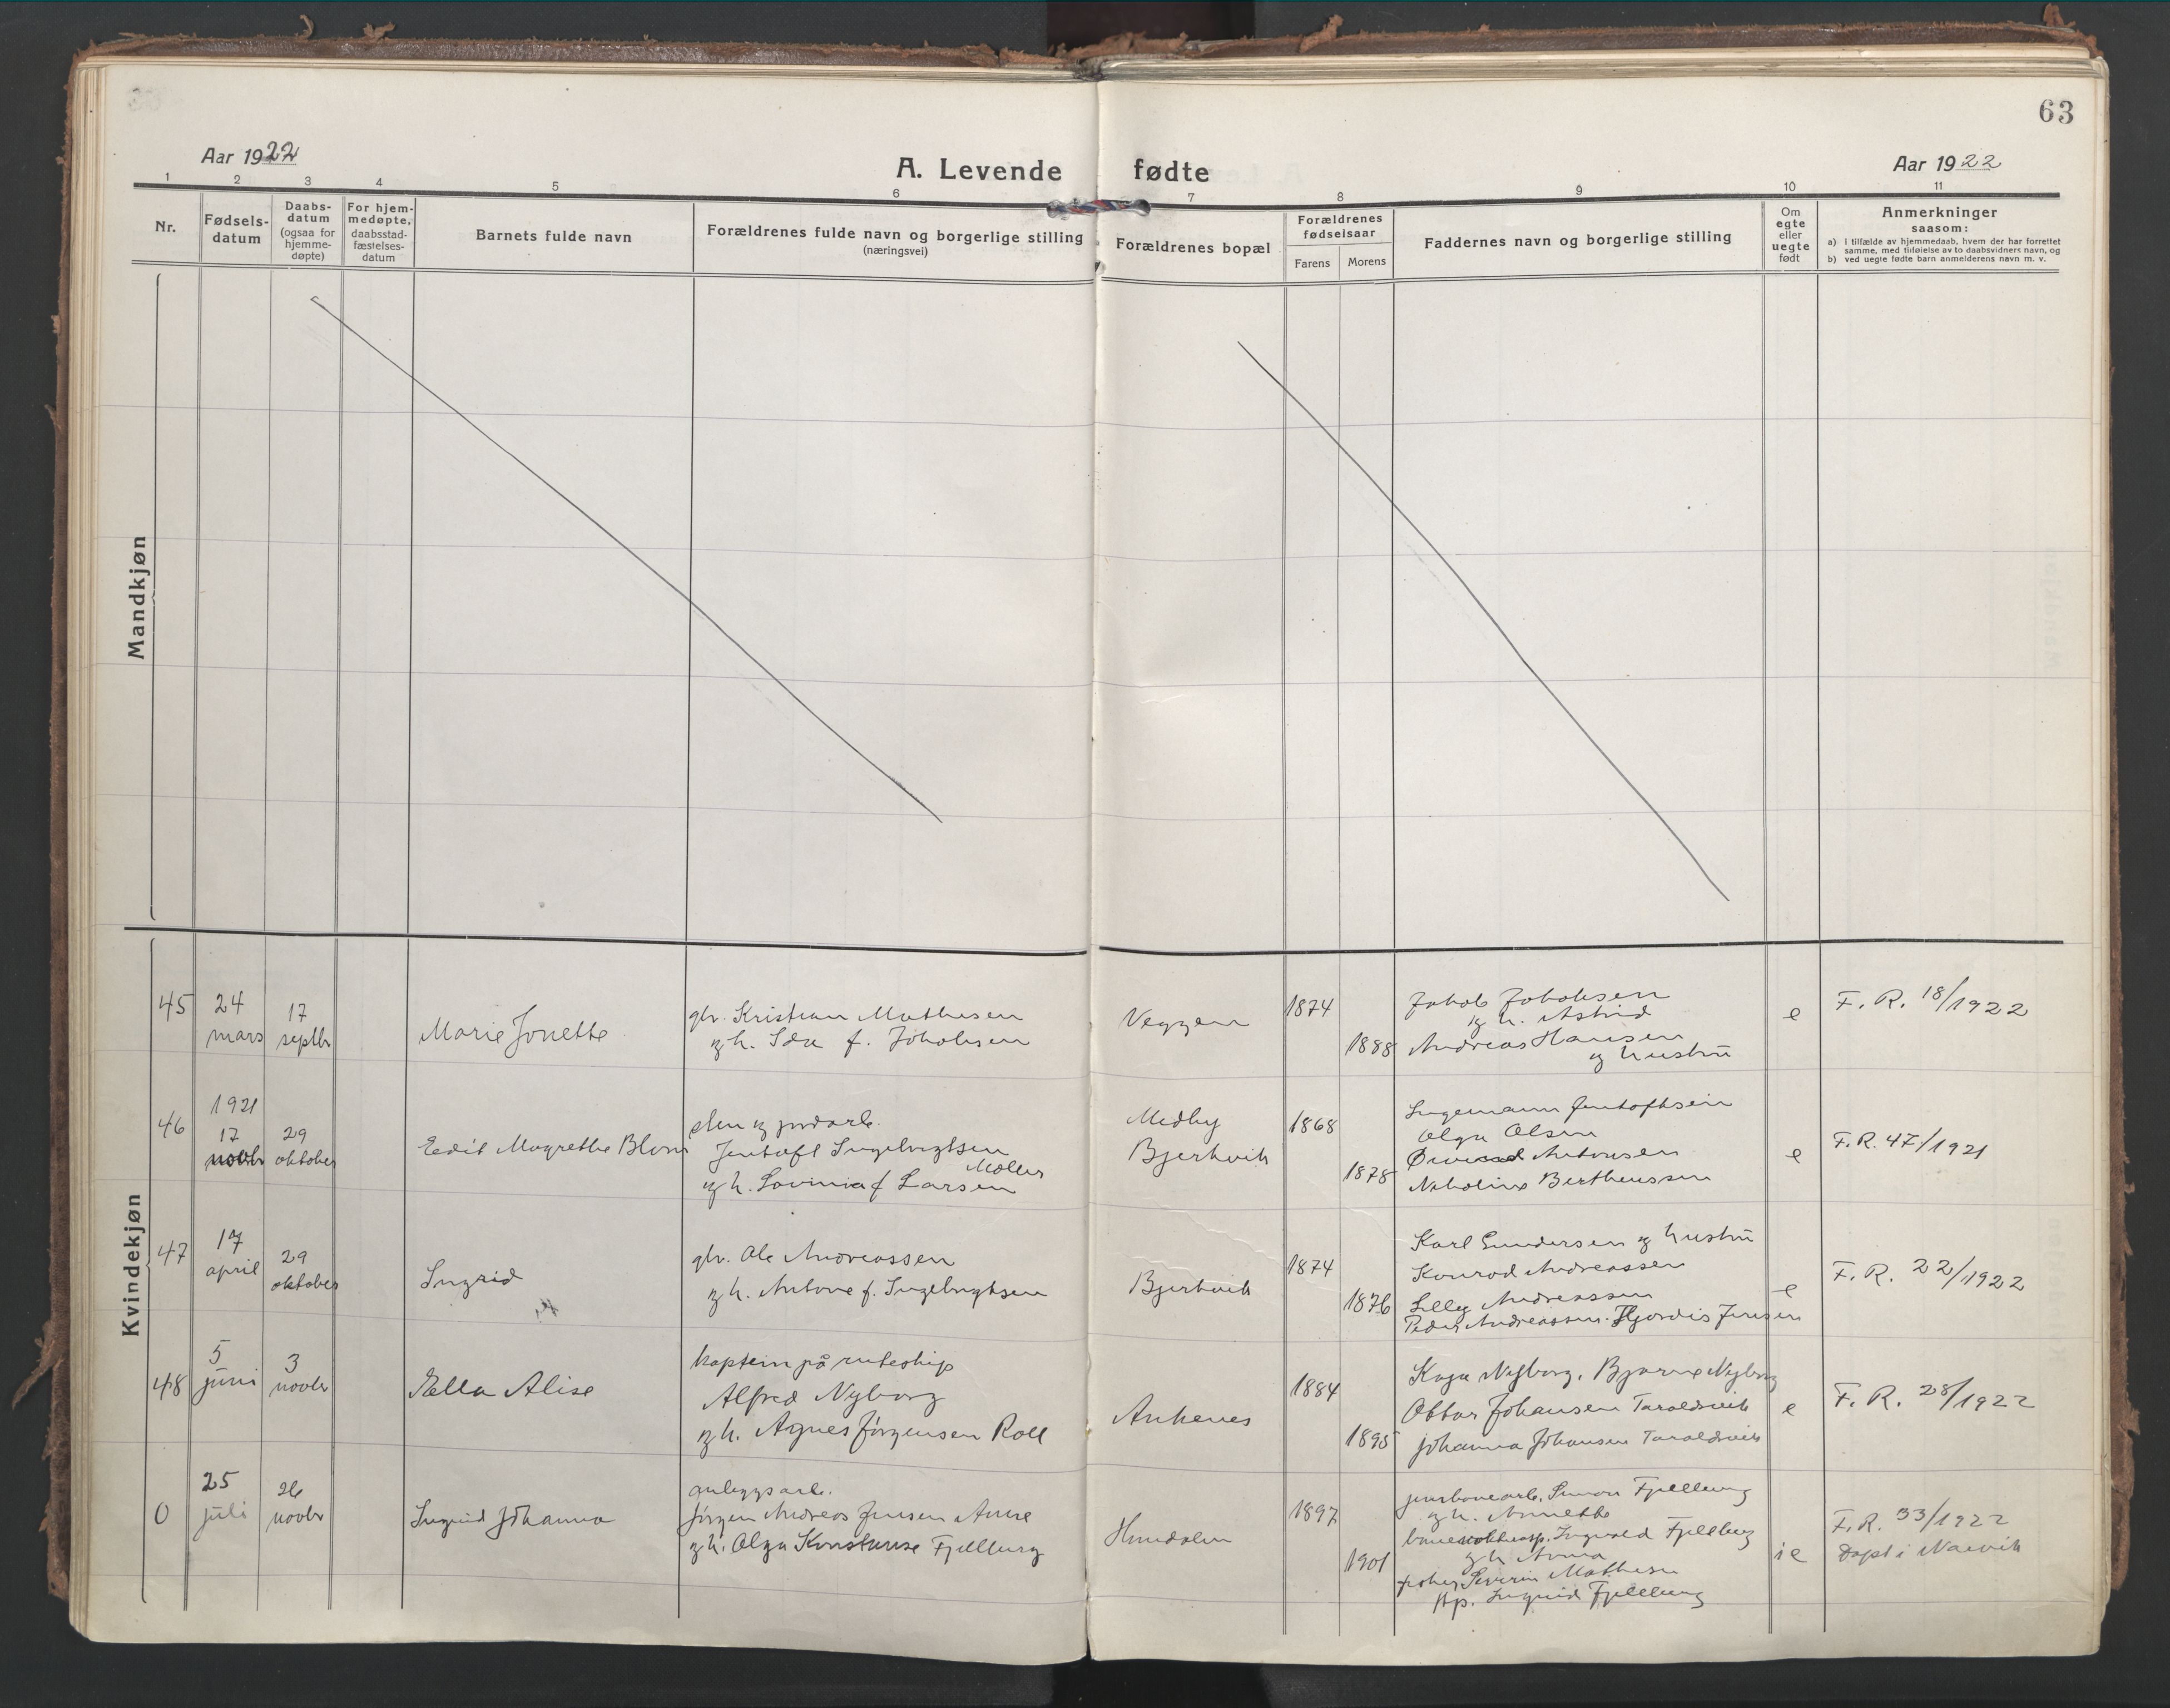 63
Aar 1922
A. Levende fødte
Aar 1922
1 2 3 4 5 6 7 8 9 10 11
Nr.
Fødsels-
datum
Daabs-
datum
(ogsaa for
hjemme-
døpte)
For hjem-
medøpte,
daabsstad-
fæstelses-
datum
Barnets fulde navn
Forældrenes fulde navn og borgerlige stilling
(næringsvei)
Forældrenes bopæl
Forældrenes
fødselsaar
Farens
Morens
Faddernes navn og borgerlige stilling
Om
egte
eller
uegte
født
Anmerkninger
saasom:
a) i tilfælde av hjemmedaab, hvem der har forrettet
samme, med tilføielse av to daabsvidners navn, og
b) ved uegte fødte barn anmelderens navn m. v.
Mandkjøn
Kvindekjøn
45
24
mars
17
septbr
Marie Jonette
gbr. Kristian Mathisen
og h. Ida f. Jakobsen
Veggen
1874
1888
Jakob Jakobsen
og h. Astrid
Andreas Hansen
og hustru
e
F. R. 18/1922
46
1921
17
novbr
29
oktober
Edit Magrethe Blom
Jentoft Ingebrigtsen
Møller
og h. Lovinia f Larsen
Medby
Bjerkvik
1868
1878
Ingemann Jentoftsen
Olga Olsen
Antonsen
Bertheussen
e
F.R. 47/1921
47
17
april
29
oktober
Ingrid
gbr. Ole Andreassen
og h. Antone f. Ingebrigtsen
Bjerkvik
1874
1876
Karl Gundersen og hustru
Konrad Andreassen
Lilly Andreassen
Peder Andreassen. Hjordis Jensen
e
F. R. 22/1922
48
5
juni
3
novbr
Ella Alise
kaptein på ruteskip
Alfred Nyborg
og h. Agnes Jørgensen Roll
Ankenes
1884
1895
Kaja Nyborg, Bjarne Nyborg
Ottar Johansen Taraldsvik
Johanna Johansen Taraldsvik
e
F. R. 28/1922
0
25
juli
26
novbr
Ingrid Johanna
anleggsarb.
Jørgen Andreas Jensen Aune
og h. Olga Konstanse Fjellberg
Hundalen
1897
1901
jernbanearb. Simon Fjellberg
og h. Annette
Ingvald Fjellberg
og h Anna
Severin Mathisen
Ingrid Fjellberg
F.R. 33/1922
Døpt i Narvik